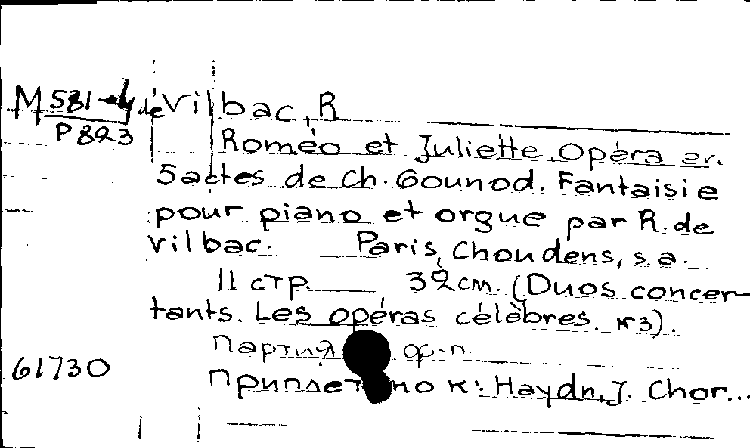 M 581-4 de Vilbac, R
P823
Roméo et Juliette. Opéra en
5 actes de Ch. Gounod. Fantaisie
pour piano et orgue par R. de
Vilbac. Paris, Choudens, s.a.
11 стр. 32 см. (Duos concer-
tants. Les opéras célèbres. №3).
Партия ф-п.
61730
Приплетено к: Haydn, J. Chor...